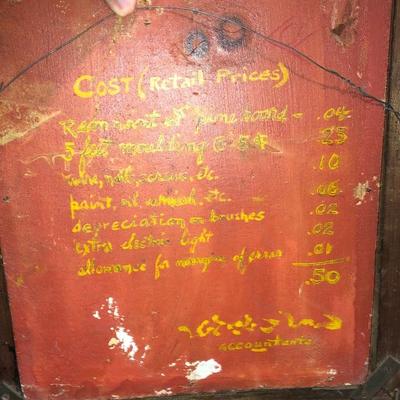 COST (Retail Prices)
.04
5 feet moulding @ 5¢ 25
wire, nails, screws, etc. .10
paint, oil, etc. .06
depreciation on brushes .02
extra electric light .02
allowance for margin of error .01
.50
accountants